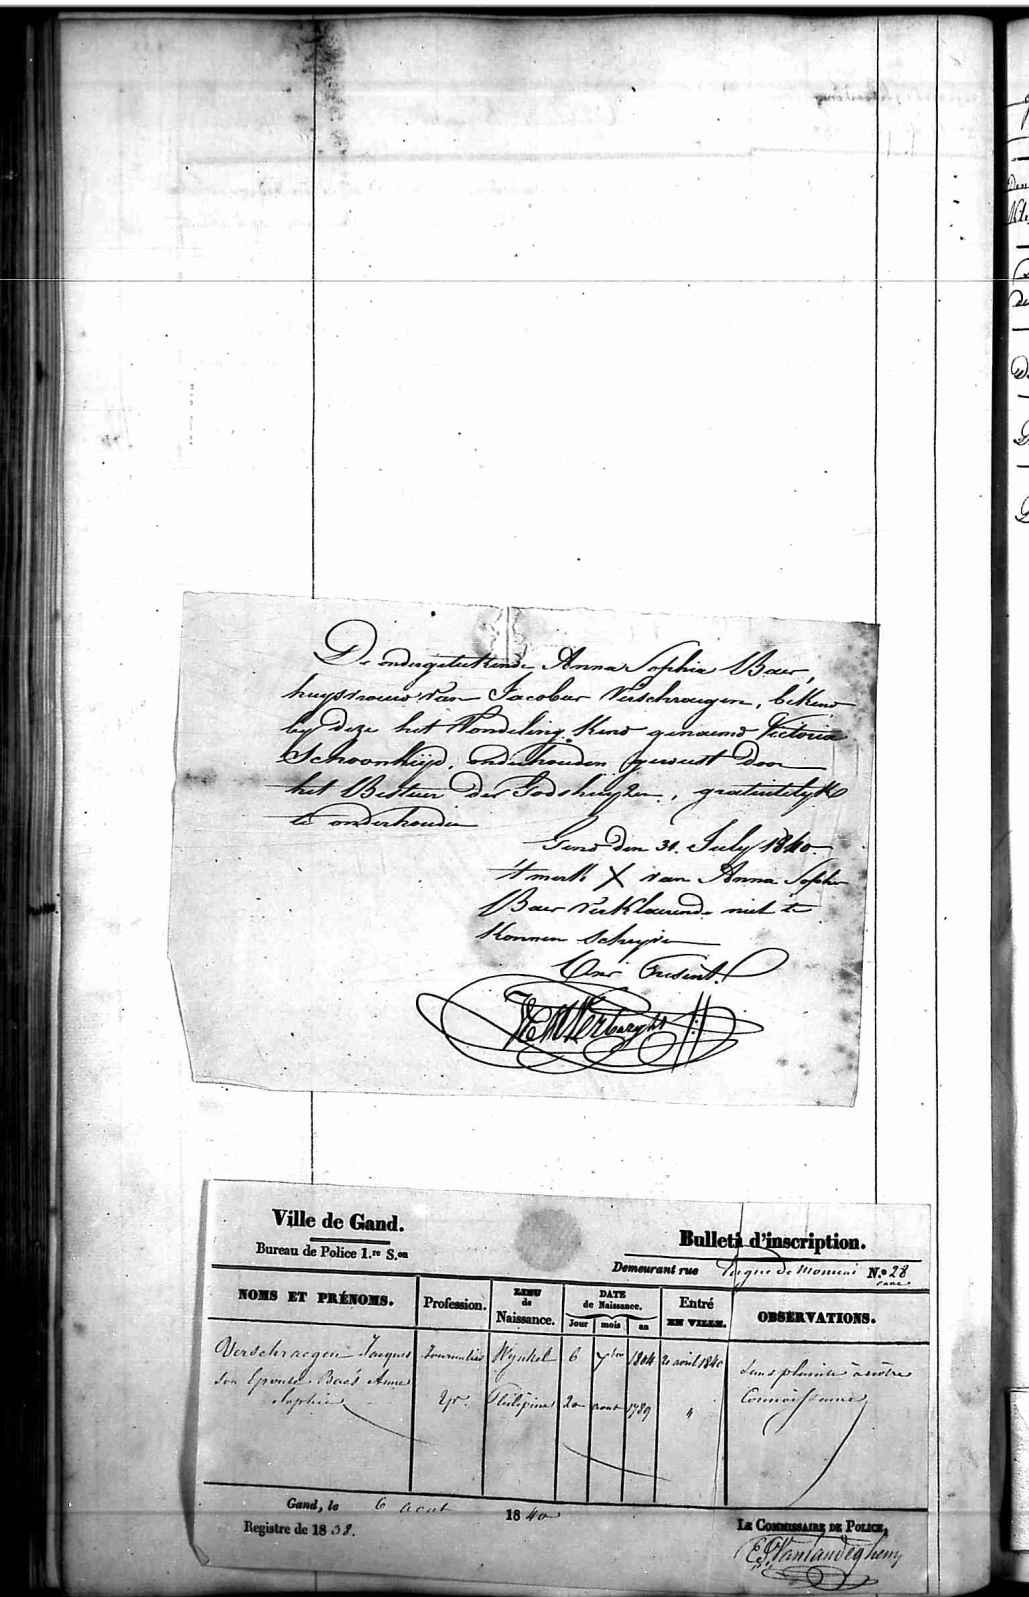 De ondergeteekende Anna Sophia Baer,
huysvrouw van Jacobus Verschraegen, bekend
by deze het Vondeling Kind genaemd Victoria
Schoontijd, onderhouden geweest door
het Bestuer der Godshuyzen, gratuitelyk
te onderhouden
Gend den 31. July 1840.
't merk X van Anna Sophia
Baer verklaerende niet te
konnen schryven
Ons Present.
Ville de Gand.
Bureau de Police 1.re S.on
Bulletin d'inscription.
Demeurant rue N.o 28
NOMS ET PRÉNOMS. Profession. LIEU de Naissance. DATE de Naissance. Jour mois an Entré EN VILLE. OBSERVATIONS.
Verschraegen Jacques Journalier Wynkel 6 7bre 1804 20 avril 1840 Sans plainte à notre
son Epouse Baes Anne connaissance
Sophie 20 aout 1789 "
Gand, le 6 aout 1840
Registre de 1838.
LE COMMISSAIRE DE POLICE,